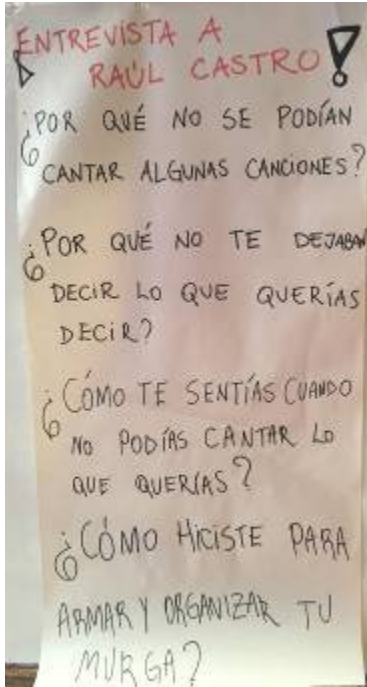 ¡ENTREVISTA A
RAÚL CASTRO!
¿POR QUÉ NO SE PODÍAN
CANTAR ALGUNAS CANCIONES?
¿POR QUÉ NO TE DEJABAN
DECIR LO QUE QUERÍAS
DECIR?
¿CÓMO TE SENTÍAS CUANDO
NO PODÍAS CANTAR LO
QUE QUERÍAS?
¿CÓMO HICISTE PARA
ARMAR Y ORGANIZAR TU
MURGA?